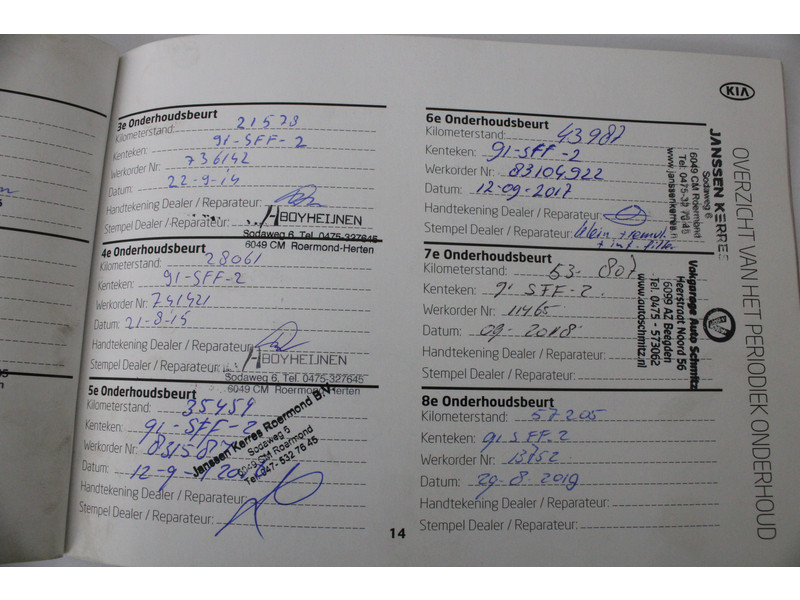 3e Onderhoudsbeurt
Kilometerstand: 21573
Kenteken: 91-SFF-2
Werkorder Nr: 736142
Datum: 22-9-14
Handtekening Dealer / Reparateur:
Stempel Dealer / Reparateur: BOYHEIJNEN
Sodaweg 6, Tel. 0475-327645
6049 CM Roermond-Herten
4e Onderhoudsbeurt
Kilometerstand: 28061
Kenteken: 91-SFF-2
Werkorder Nr: 741421
Datum: 21-8-15
Handtekening Dealer / Reparateur:
Stempel Dealer / Reparateur: BOYHEIJNEN
Sodaweg 6, Tel. 0475-327645
6049 CM Roermond-Herten
5e Onderhoudsbeurt
Kilometerstand: 35459
Kenteken: 91-SFF-2
Werkorder Nr:
Datum: 12-9-
Handtekening Dealer / Reparateur:
Stempel Dealer / Reparateur:
Janssen Kerres Roermond B.V.
Sodaweg 6
6049 CM Roermond
14
KIA
OVERZICHT VAN HET PERIODIEK ONDERHOUD
6e Onderhoudsbeurt
Kilometerstand: 43987
Kenteken: 91-SFF-2
Werkorder Nr: 83104922
Datum: 12-09-2017
Handtekening Dealer / Reparateur:
Stempel Dealer / Reparateur: klein + remvl.
+ int. filter
JANSSEN KERRES
Sodaweg 6
6049 CM Roermond
www.janssenkerres.nl
7e Onderhoudsbeurt
Kilometerstand: 53-807
Kenteken: 91 SFF-2
Werkorder Nr: 11465
Datum: 09-2018
Handtekening Dealer / Reparateur:
Stempel Dealer / Reparateur:
Vakgarage Auto Schmitz
Heerstraat Noord 56
6099 AZ Beegden
Tel. 0475 - 573062
www.autoschmitz.nl
8e Onderhoudsbeurt
Kilometerstand: 57205
Kenteken: 91 SFF-2
Werkorder Nr: 13752
Datum: 29-8-2019
Handtekening Dealer / Reparateur:
Stempel Dealer / Reparateur: